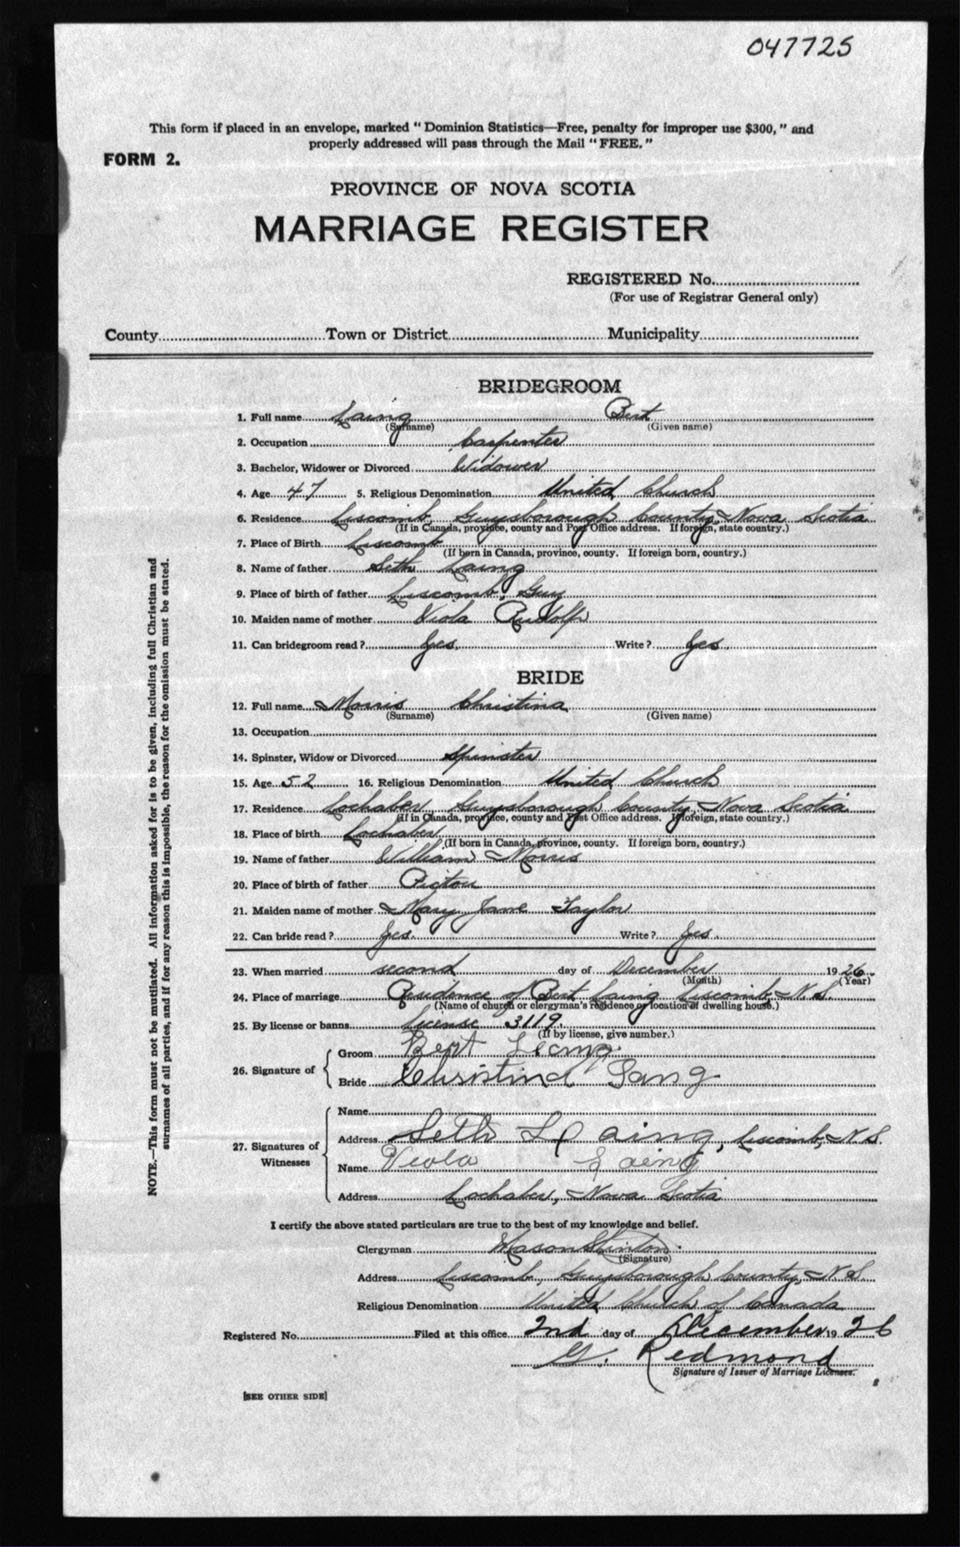 047725
This form if placed in an envelope, marked "Dominion Statistics—Free, penalty for improper use $300," and
properly addressed will pass through the Mail "FREE."
FORM 2.
PROVINCE OF NOVA SCOTIA
MARRIAGE REGISTER
REGISTERED No.
(For use of Registrar General only)
County Town or District Municipality
BRIDEGROOM
1. Full name Laing Bert
(Surname) (Given name)
2. Occupation Carpenter
3. Bachelor, Widower or Divorced Widower
4. Age 47 5. Religious Denomination United Church
6. Residence Liscomb, Guysborough County, Nova Scotia
(If in Canada, province, county and Post Office address. If foreign, state country.)
7. Place of Birth Liscomb
(If born in Canada, province, county. If foreign born, country.)
8. Name of father Seth Laing
9. Place of birth of father Liscomb, Guy
10. Maiden name of mother Viola Rudolf
11. Can bridegroom read? Yes. Write? Yes.
BRIDE
12. Full name Morris Christina
(Surname) (Given name)
13. Occupation
14. Spinster, Widow or Divorced Spinster
15. Age 52 16. Religious Denomination United Church
17. Residence Lochaber, Guysborough County, Nova Scotia
(If in Canada, province, county and Post Office address. If foreign, state country.)
18. Place of birth Lochaber
(If born in Canada, province, county. If foreign born, country.)
19. Name of father William Morris
20. Place of birth of father Pictou
21. Maiden name of mother Mary Jane Taylor
22. Can bride read? Yes. Write? Yes.
23. When married second day of December 1926
(Month) (Year)
24. Place of marriage Residence of Bert Laing Liscomb, N.S.
(Name of church or clergyman's residence or location of dwelling house.)
25. By license or banns License 3119
(If by license, give number.)
26. Signature of Groom Bert Laing
Bride Christina Lang
27. Signatures of Witnesses
Name
Address Seth Laing, Liscomb, N.S.
Name Viola Laing
Address Lochaber, Nova Scotia
I certify the above stated particulars are true to the best of my knowledge and belief.
Clergyman Mason Linton
(Signature)
Address Liscomb, Guysborough County, N.S.
Religious Denomination United Church of Canada
Registered No. Filed at this office 2nd day of December 1926
G. Redmond
Signature of Issuer of Marriage Licenses.
[SEE OTHER SIDE]
NOTE.—This form must not be mutilated. All information asked for is to be given, including full Christian and
surnames of all parties, and if for any reason this is impossible, the reason for the omission must be stated.